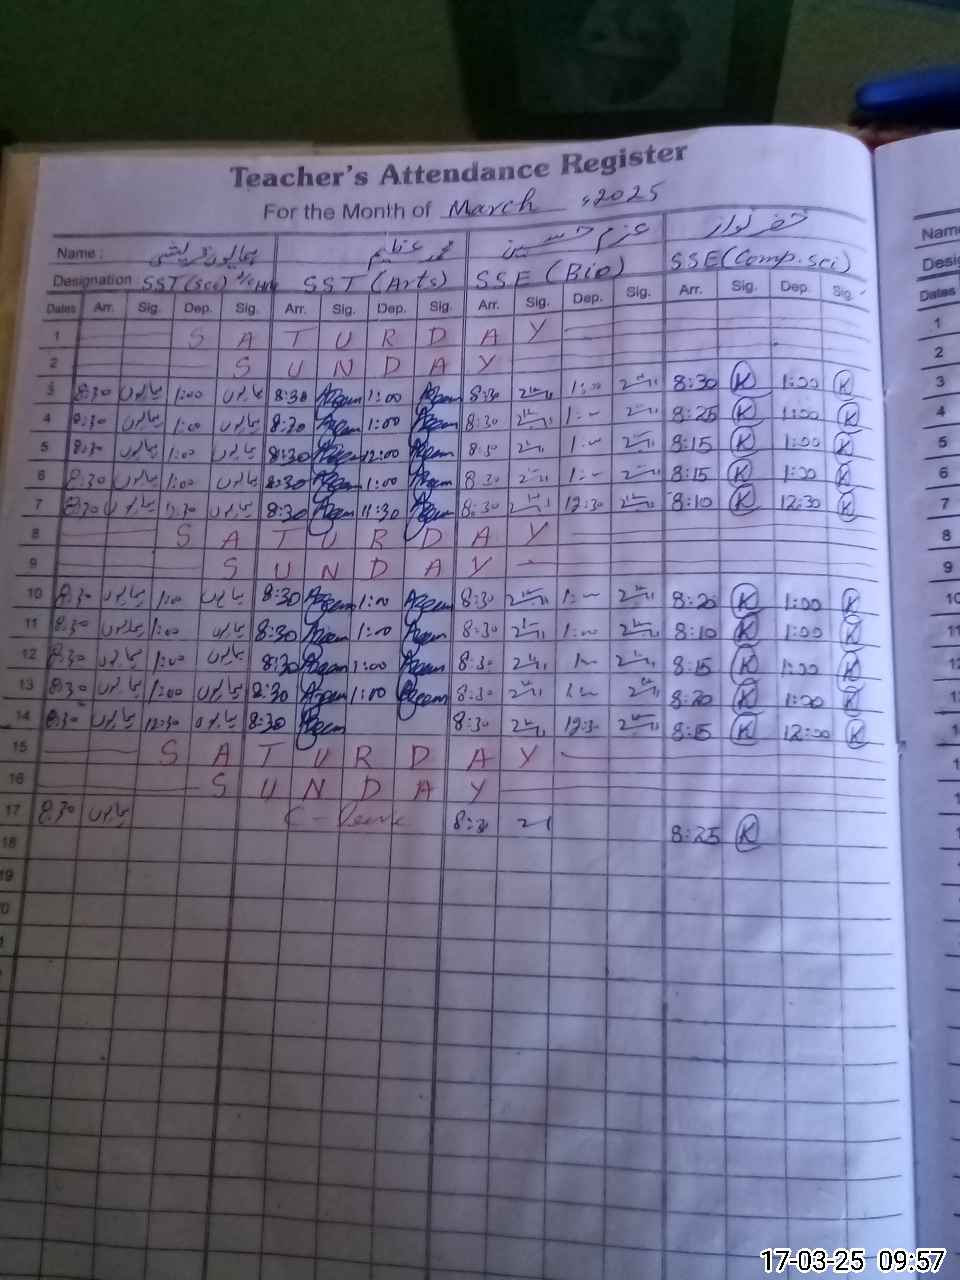 Teacher's Attendance Register
For the Month of March, 2025
Name: ہمایوں قریشی محمد عظیم عزم حسین خضر نواز
Designation SST (Sci) SST (Arts) SSE (Bio) SSE (Comp. Sci)
Dates Arr. Sig. Dep. Sig. Arr. Sig. Dep. Sig. Arr. Sig. Dep. Sig. Arr. Sig. Dep. Sig.
1 S A T U R D A Y
2 S U N D A Y
3 8:30 ہمایوں 1:00 ہمایوں 8:30 Azeem 1:00 Azeem 8:30 1:00 8:30 K 1:00 K
4 8:30 ہمایوں 1:00 ہمایوں 8:30 Azeem 1:00 Azeem 8:30 1:00 8:25 K 1:00 K
5 8:30 ہمایوں 1:00 ہمایوں 8:30 Azeem 12:00 Azeem 8:30 1:00 8:15 K 1:00 K
6 8:30 ہمایوں 1:00 ہمایوں 8:30 Azeem 1:00 Azeem 8:30 1:00 8:15 K 1:00 K
7 8:30 ہمایوں 12:30 ہمایوں 8:30 Azeem 11:30 Azeem 8:30 12:30 8:10 K 12:30 K
8 S A T U R D A Y
9 S U N D A Y
10 8:30 ہمایوں 1:00 ہمایوں 8:30 Azeem 1:00 Azeem 8:30 1:00 8:20 K 1:00 K
11 8:30 ہمایوں 1:00 ہمایوں 8:30 Azeem 1:00 Azeem 8:30 1:00 8:10 K 1:00 K
12 8:30 ہمایوں 1:00 ہمایوں 8:30 Azeem 1:00 Azeem 8:30 1:00 8:15 K 1:00 K
13 8:30 ہمایوں 1:00 ہمایوں 8:30 Azeem 1:00 Azeem 8:30 1:00 8:20 K 1:00 K
14 8:30 ہمایوں 12:30 ہمایوں 8:30 Azeem 8:30 12:30 8:15 K 12:00 K
15 S A T U R D A Y
16 S U N D A Y
17 8:30 ہمایوں C-Leave 8:30 8:25 K
18
19
Name
Desig
Dates
1
2
3
4
5
6
7
8
9
10
11
17-03-25 09:57